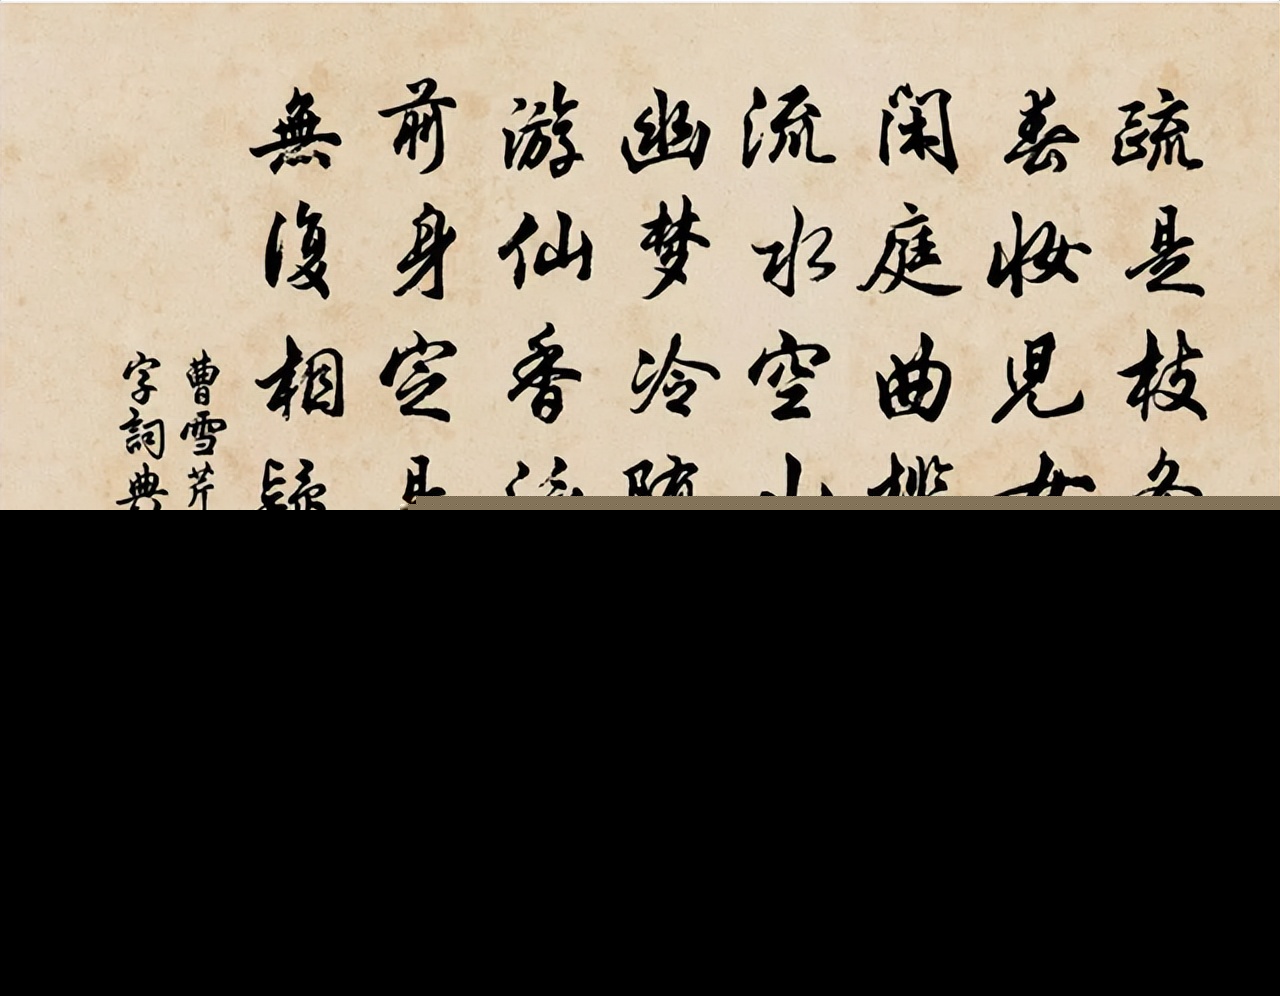 疏是枝
春妆児
閑庭曲
流水空
幽梦冷
游仙香
前身定
無復相疑
曹雪芹
字詞典